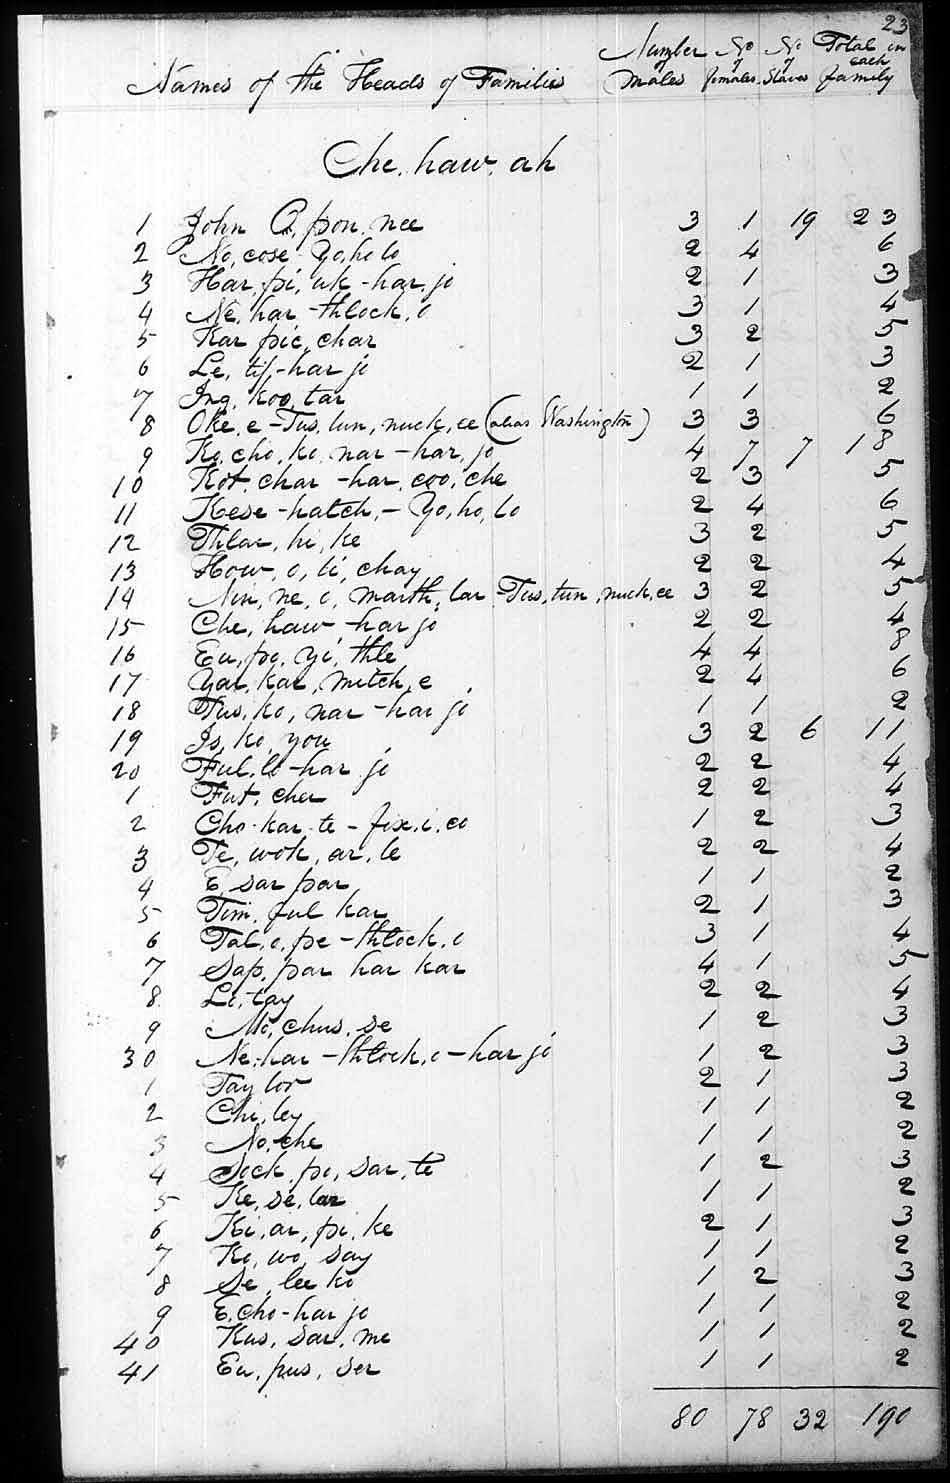 23
Names of the Heads of Families Number of Males No of females No of Slaves Total in each family
Che, haw, ah
1 John O, pon, nee 3 1 19 23
2 No, cose Yo, ho lo 2 4 6
3 Har, pi, uk - har, jo 2 1 3
4 Ne, har - thlock, o 3 1 4
5 Kar pic, char 3 2 5
6 Le, tif - har jo 2 1 3
7 Ing, koo, tar 1 1 2
8 Oke, e - Tus, tun, nuck, ee (alias Washington) 3 3 6
9 Ko, cho, ko, nar - har, jo 4 7 7 18
10 Kot, char - har, coo, che 2 3 5
11 Kese - hatch, - Yo, ho, lo 2 4 6
12 Thlar, hi, ke 3 2 5
13 How, o, li, chay 2 2 4
14 Nin, ne, o, marth, lar - Tus, tun, nuck, ee 3 2 5
15 Che, haw - har jo 2 2 4
16 Eu, po, yi, thle 4 4 8
17 Yar, kar, mitch, e 2 4 6
18 Tus, ko, nar - har jo 1 1 2
19 Is, ko, you 3 2 6 11
20 Ful, lo - har jo 2 2 4
1 Fut, cher 2 2 4
2 Cho - kar - te - fix, i, co 1 2 3
3 Te, wok, ar, le 2 2 4
4 E, sar par 1 1 2
5 Tim, ful kar 2 1 3
6 Tal, o, pe - thlock, o 3 1 4
7 Sap, par har kar 4 1 5
8 Lo, tay 2 2 4
9 Mo, chus, se 1 2 3
30 Ne, har - thlock, o - har jo 1 2 3
1 Tay lor 2 1 3
2 Chi, ley 1 1 2
3 No, che 1 1 2
4 Sock, po, sar, te 1 2 3
5 Ke, se, lar 1 1 2
6 Ki, ar, pi, ke 2 1 3
7 Ko, wo, say 1 1 2
8 Se, lee ko 1 2 3
9 E, cho - har jo 1 1 2
40 Kus, sar, me 1 1 2
41 Eu, pus, ser 1 1 2
80 78 32 190